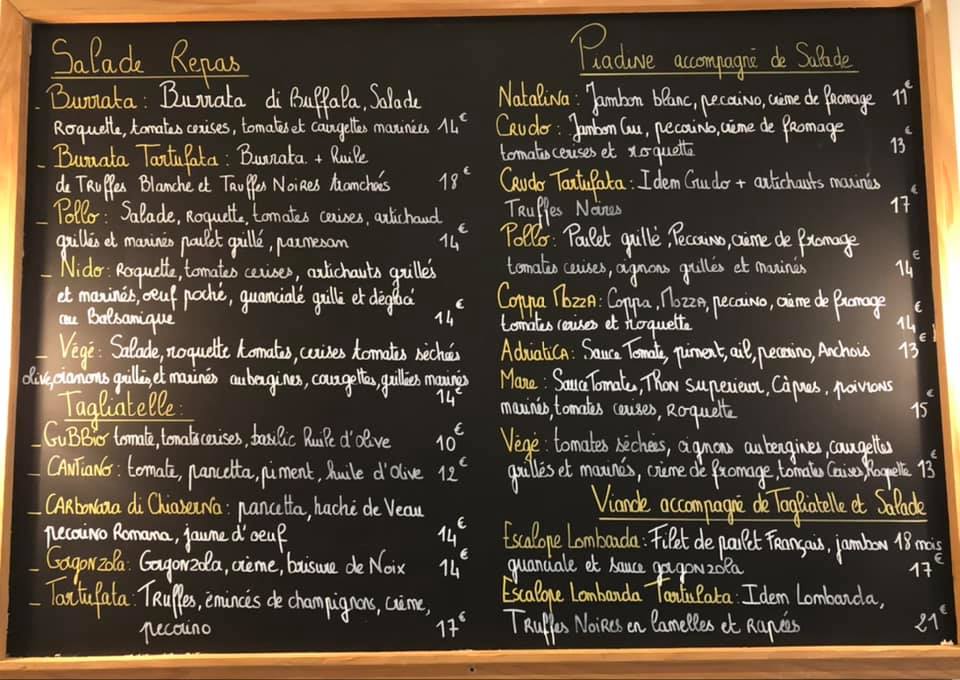 Salade Repas
- Burrata : Burrata di Buffala, Salade
Roquette, tomates cerises, tomates et courgettes marinées 14€
- Burrata Tartufata : Burrata + huile
de Truffes Blanche et Truffes Noires tranchées 18€
- Pollo : Salade, roquette, tomates cerises, artichaud
grillés et marinés poulet grillé, parmesan 14€
- Nido : Roquette, tomates cerises, artichauts grillés
et marinés, oeuf poché, guancialé grillé et déglacé
au Balsamique 14€
- Végé : Salade, roquette tomates, cerises tomates sèchées
olive, oignons grillés, et marinés aubergines, courgettes, grillées marinés
14€
Tagliatelle :
- GuBBio tomate, tomates cerises, basilic huile d'olive 10€
- CANTIANO : tomate, pancetta, piment, huile d'olive 12€
- CARbonara di Chiaserna : pancetta, haché de Veau
pecorino Romana, jaune d'oeuf 14€
- Gogonzola : Gogonzola, crème, brisure de Noix 14€
- Tartufata : Truffes, émincés de champignons, crème,
pecorino 17€
Piadine accompagné de Salade
Natalina : Jambon blanc, pecorino, crème de fromage 11€
Crudo : Jambon Cru, pecorino, crème de fromage
tomates cerises et roquette 13€
Crudo Tartufata : Idem Crudo + artichauts marinés
Truffes Noires 17€
Pollo : Poulet grillé, Pecorino, crème de fromage
tomates cerises, oignons grillés et marinés 14€
Coppa MozzA : Coppa, MozzA, pecorino, crème de fromage
tomates cerises et roquette 14€
AdriaticA : Sauce Tomate, piment, ail, pecorino, Anchois 13€
Mare : Sauce Tomate, Thon superieur, Câpres, poivrons
marinés, tomates cerises, Roquette 15€
Végé : tomates séchées, oignons aubergines, courgettes
grillés et marinés, crème de fromage, tomates Cerises, Roquette 13€
Viande accompagné de Tagliatelle et Salade
Escalope Lombarda : Filet de poulet Français, jambon 18 mois
guanciale et sauce gorgonzola 17€
Escalope Lombarda Tartufata : Idem Lombarda,
Truffes Noires en lamelles et rapées 21€